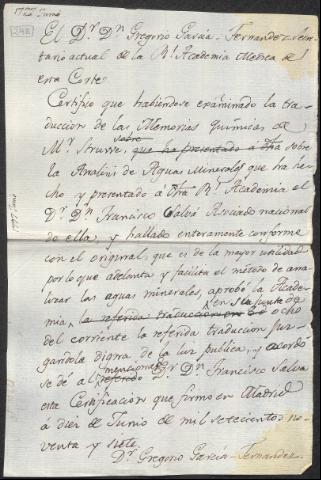 1797 Junio
El Dr. Dn. Gregorio García Fernandez Secre-
tario actual de la Rl. Academia Medica de
esta Corte.
Certifico que habiendose exâminado la tra-
duccion de las Memorias Químicas de
sobre
Mr. Struwe, que ha presentado á dha sobre
la Analisi de Aguas Minerales que ha he-
cho y presentado á dha Rl. Academia el
Dr. Dn. Francisco Salvá Asociado nacional
de ella, y hallado enteramente conforme
con el original, que es de la mayor utilidad
por lo que adelanta y facilita el método de ana-
lizar las aguas minerales, aprobó la Acade-
en su junta de
mia, la referida traduccion ocho
del corriente la referida traduccion juz-
gandola digna de la luz publica, y acordó
mencionado
se dé al referido Dr. Dn. Francisco Salva
esta Certificacion que firmo en Madrid
á diez de Junio de mil setecientos no-
venta y siete.
Dr. Gregorio García Fernandez.
1797 Junio